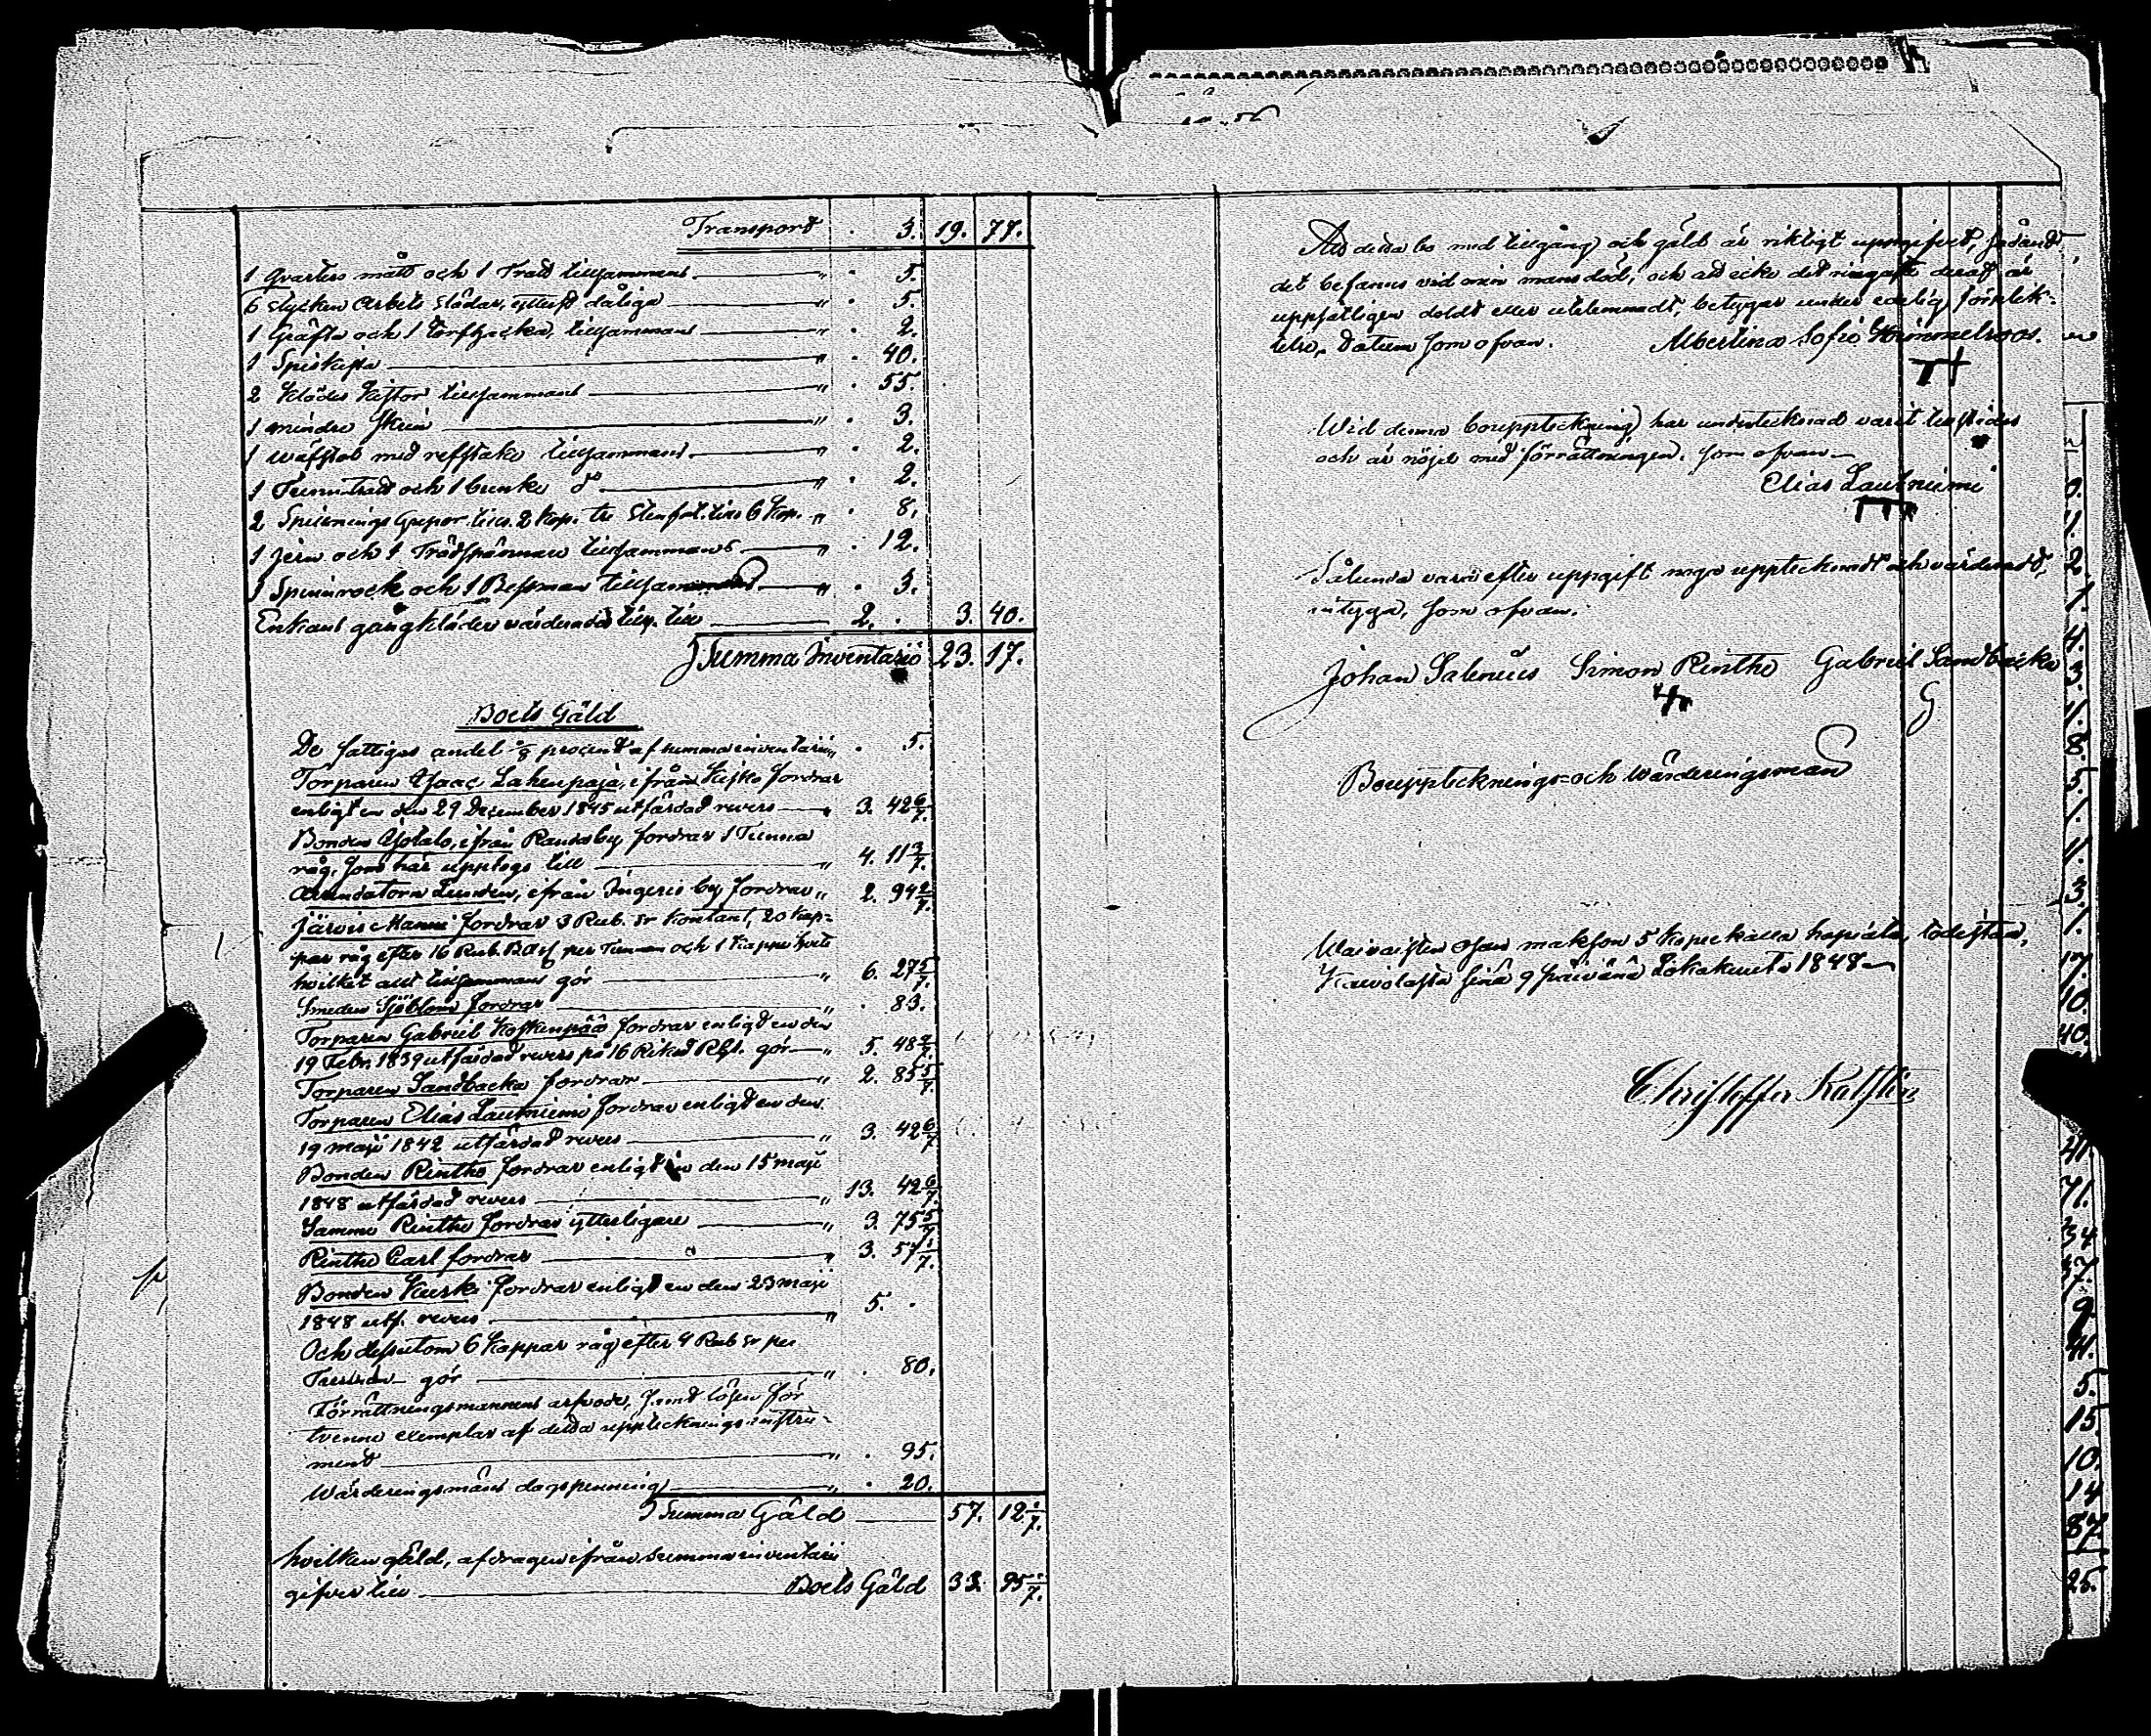 Transport . 3. 19. 77.
1 Qvarters mått och 1 Tratt tillsammans „ . 5.
6 stycken Arbets slädar, ytterst dåliga „ . 5.
1 Gräfta och 1 torfhacka, tillsammans „ . 2.
1 Spiskista „ . 40.
2 Klädes Kistor tillsammans „ . 55.
1 mindre skrin „ . 3.
1 wäfstol med tillsammans „ . 2.
1 och 1 bunke do „ . 2.
2 Spisnings 2 Kop. 6 Kop. „ . 8.
1 jern och 1 tillsammans „ . 12.
1 Spinnrock och 1 Besman tillsammans „ . 3.
Enkans gångkläder värderade till 2. . 3. 40.
Summa Inventarii 23. 17.
Boets Gäld
De fattigas andel 1/8 procent af summa inventarii „ . 5.
Torparen Isaac Lahenpajä, ifrån Kisko fordrar
enligt en den 29 December 1845 utfärdad revers „ 3. 42 6/7.
Bonden Isotalo, ifrån by, fordrar 1 Tunna
råg, som här upptogs till „ 4. 11 3/7.
Arendatorn Lunden, ifrån Ingeris by fordrar „ 2. 94 2/7.
Järvis Hanni fordrar 3 Rub. Sr kontant, 20 kap-
par råg efter 16 Rub. B.Ass. per Tunna och 1 Kappe
hvilket allt tillsammans gör „ 6. 27 5/7.
Smeden Sjöblom fordrar „ . 83.
Torparen Gabriel Koskenpää fordrar enligt en den
19 Febr. 1839 utfärdad revers på 16 gör „ 5. 48 4/7.
Torparen Sandbacka fordrar „ 2. 85 5/7.
Torparen Elias Lautniemi fordrar enligt en den
19 maji 1842 utfärdad revers „ 3. 42 6/7
Bonden Rintho fordrar enligt en den 15 maji
1848 utfärdad revers „ 13. 42 6/7.
Samme Rintho fordrar ytterligare „ 3. 75 5/7.
Rintho Carl fordrar „ 3. 57 1/7.
Bonden Kurki fordrar enligt en den 23 maji
1848 utf. revers „ 5. .
Och dessutom 6 Kappar råg efter 4 Rub Sr per
Tunnan gör „ . 80.
Förrättningsmannens arfvode, samt lösen för
tvenne exemplar af detta upptecknings instru-
ment „ . 95.
Wärderingsmäns dagspenning . 20.
Summa Gäld 57. 12 1/7.
hvilken gäld, afdragen ifrån summa inventarii
gifver till Boets Gäld 33. 95 1/7.
Att detta bo med tillgång och gäld är riktigt uppgifvet, sådant
det befanns vid min mans död, och att icke det ringaste deraf är
uppsåtligen doldt eller utelemnadt, betygar under edelig förplik-
telse. Datum som ofvan. Albertina Sofia Himmelroos.
Wid denna bouppteckning har undertecknad varit tillstädes
och är nöjd med förrättningen. som ofvan
Elias Lautniemi
Sålunda vara efter uppgift noga upptecknadt och värderadt,
intyga, som ofvan.
Johan Salenius Simon Rintho Gabriel Sandbacka
G
Bouppteknings- och Wärderingsmän
Waivaisten Osan makson 5 Kopeekalla hopiata, todistan,
Kaivolasta sinä 9 päivänä Lokakuuta 1848